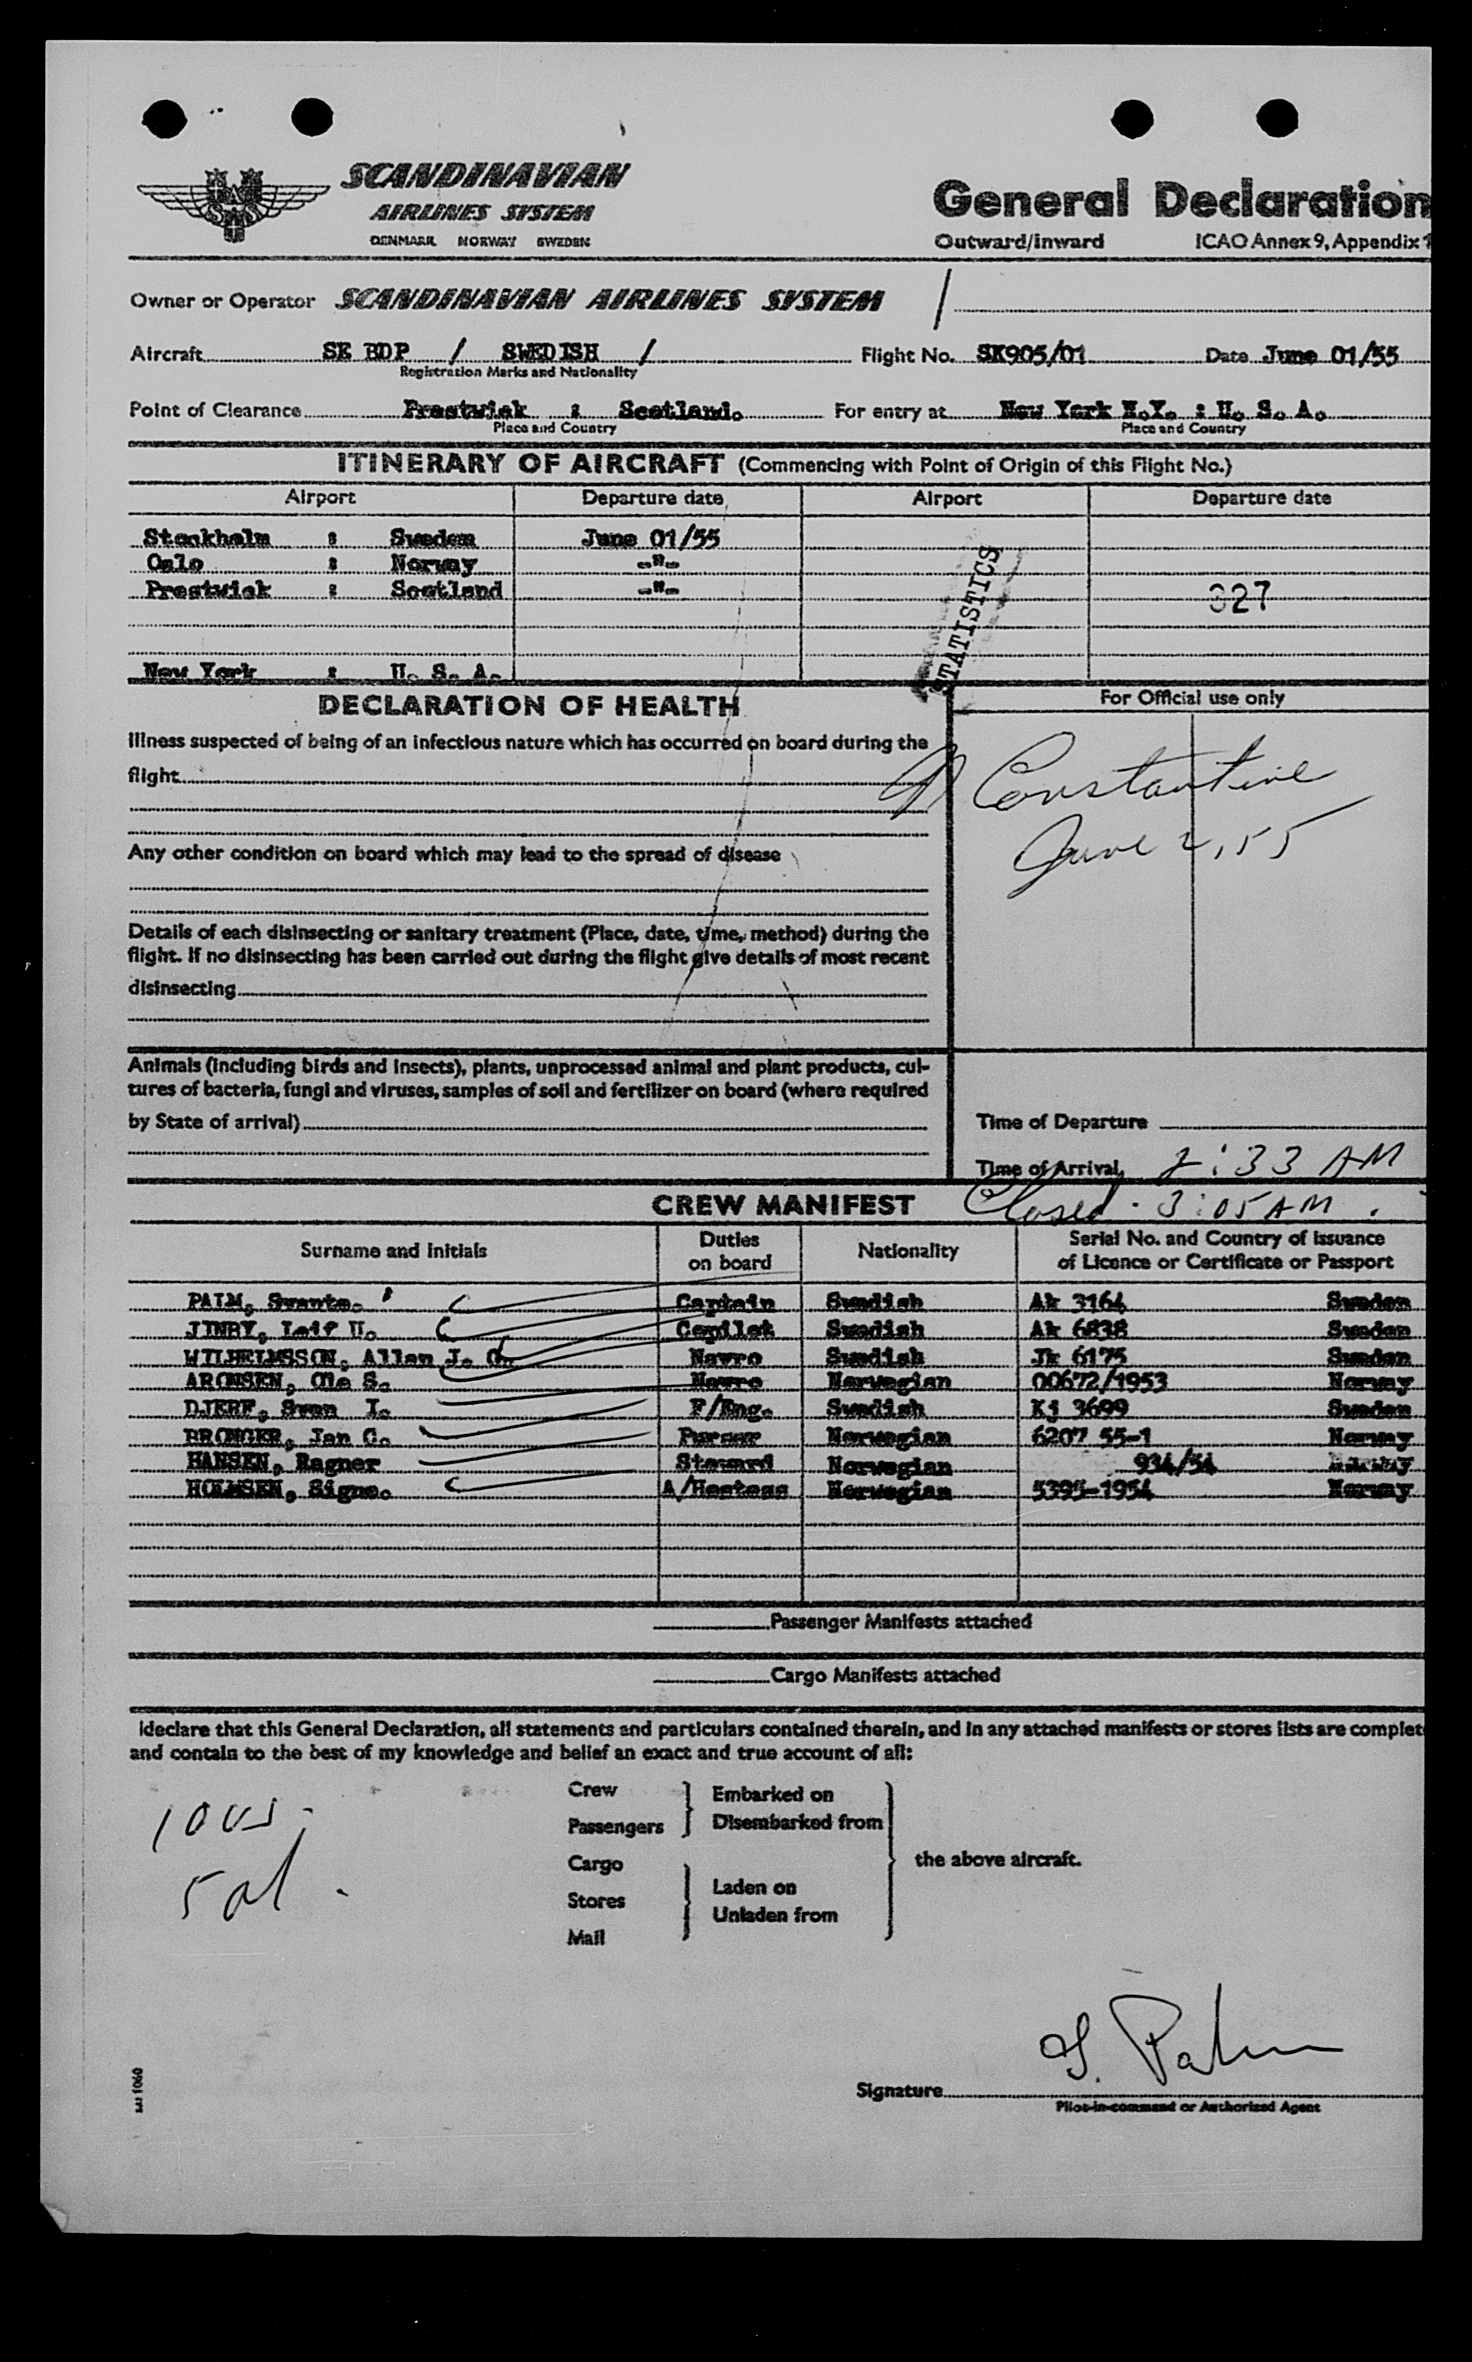 SCANDINAVIAN
AIRLINES SYSTEM
DENMARK NORWAY SWEDEN
General Declaration
Outward/inward ICAO Annex 9, Appendix 1
Owner or Operator SCANDINAVIAN AIRLINES SYSTEM /
Aircraft SE BDP / SWEDISH / Flight No. SK905/01 Date June 01/55
Registration Marks and Nationality
Point of Clearance Prestwick : Scotland. For entry at New York N.Y. : U. S. A.
Place and Country Place and Country
ITINERARY OF AIRCRAFT (Commencing with Point of Origin of this Flight No.)
Airport Departure date Airport Departure date
Stockholm : Sweden June 01/55
Oslo : Norway -"-
Prestwick : Scotland -"-
327
STATISTICS
New York : U. S. A.
DECLARATION OF HEALTH
For Official use only
Illness suspected of being of an infectious nature which has occurred on board during the
flight
Constantine
June 2, 55
Any other condition on board which may lead to the spread of disease
Details of each disinsecting or sanitary treatment (Place, date, time, method) during the
flight. If no disinsecting has been carried out during the flight give details of most recent
disinsecting
Animals (including birds and insects), plants, unprocessed animal and plant products, cul-
tures of bacteria, fungi and viruses, samples of soil and fertilizer on board (where required
by State of arrival)
Time of Departure
Time of Arrival, 2:33 AM
CREW MANIFEST
Closed - 3:05 AM.
Surname and Initials Duties on board Nationality Serial No. and Country of Issuance of Licence or Certificate or Passport
PALM, Swante. Captain Swedish Ak 3164 Sweden
JINBY, Leif U. Copilot Swedish Ak 6838 Sweden
WILHELMSSON, Allan J. G. Navro Swedish Jk 6175 Sweden
ARONSEN, Ole S. Navro Norwegian 00672/1953 Norway
DJERF, Sven I. F/Eng. Swedish Kj 3699 Sweden
BRONGER, Jan C. Purser Norwegian 6207 55-1 Norway
HANSEN, Ragner Steward Norwegian 934/54 Norway
HOLMSEN, Signe. A/Hostess Norwegian 5395-1954 Norway
Passenger Manifests attached
Cargo Manifests attached
I declare that this General Declaration, all statements and particulars contained therein, and in any attached manifests or stores lists are complet
and contain to the best of my knowledge and belief an exact and true account of all:
Crew
Passengers
Embarked on
Disembarked from
Cargo
Stores
Mail
Laden on
Unladen from
the above aircraft.
10 US.
5 al.
S. Palm
Signature
Pilot-in-command or Authorized Agent
1060